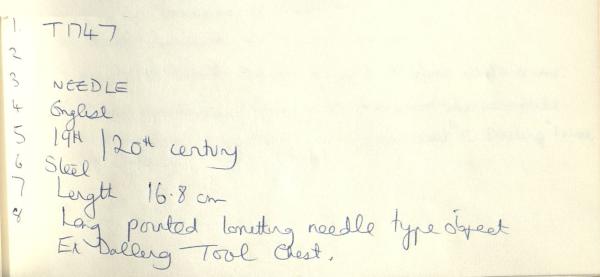 1 T1747
2
3 NEEDLE
4 English
5 19th / 20th century
6 Steel
7 Length 16.8 cm
8 Long pointed knitting needle type object
Ex Dalleng Tool Chest.